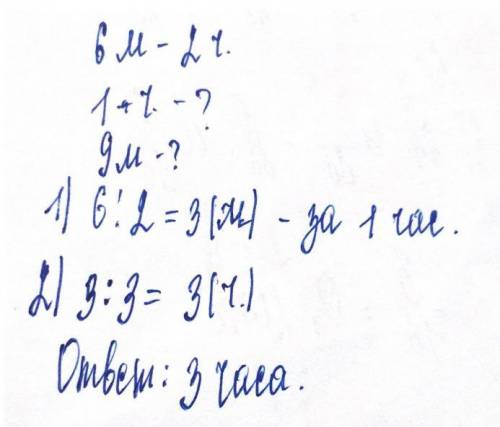 6 м - 2 ч.
1 ч. - ?
9 м - ?
1) 6 : 2 = 3 (м) - за 1 час.
2) 3 : 3 = 3 (ч.)
Ответ: 3 часа.